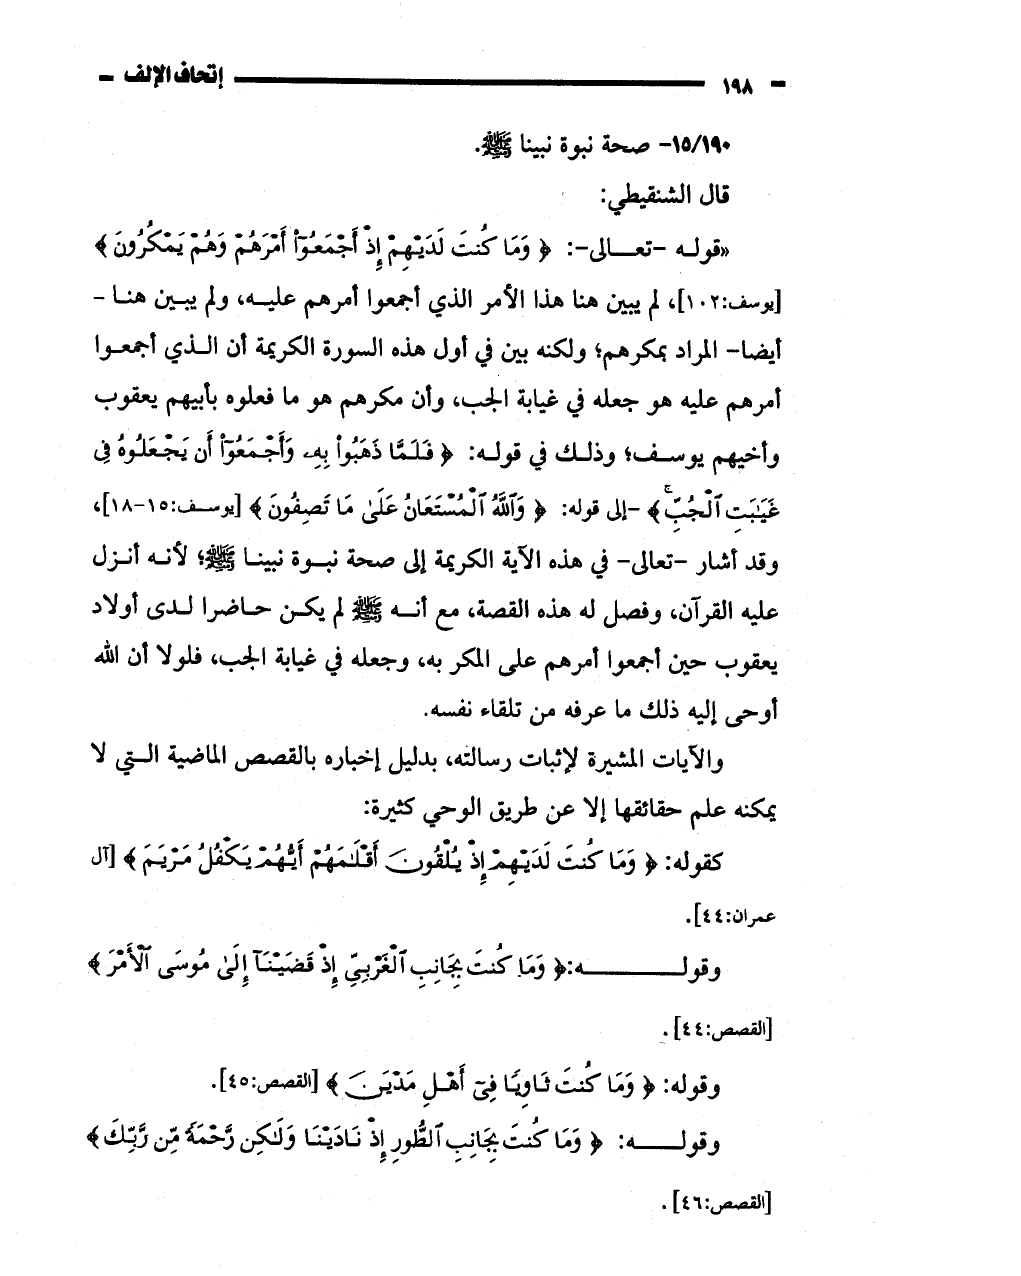 ١٩٨ إتحاف الإلف
١٥/١٩٠- صحة نبوة نبينا ﷺ.
قال الشنقيطي:
«قولـه -تعـــالى-: ﴿ وَمَا كُنتَ لَدَيْهِمْ إِذْ أَجْمَعُوٓا۟ أَمْرَهُمْ وَهُمْ يَمْكُرُونَ ﴾
[يوسف:١٠٢]، لم يبين هنا هذا الأمر الذي أجمعوا أمرهم عليـه، ولم يبـين هنـا -
أيضا- المراد بمكرهم؛ ولكنه بين في أول هذه السورة الكريمة أن الـذي أجمعـوا
أمرهم عليه هو جعله في غيابة الجب، وأن مكرهم هو ما فعلوه بأبيهم يعقوب
وأخيهم يوسـف؛ وذلـك في قولـه: ﴿ فَلَمَّا ذَهَبُوا۟ بِهِۦ وَأَجْمَعُوٓا۟ أَن يَجْعَلُوهُ فِى
غَيَـٰبَتِ ٱلْجُبِّ ۚ ﴾ -إلى قوله: ﴿ وَٱللَّهُ ٱلْمُسْتَعَانُ عَلَىٰ مَا تَصِفُونَ ﴾ [يوسـف:١٥-١٨]،
وقد أشار -تعالى- في هذه الآية الكريمة إلى صحة نبـوة نبينـا ﷺ؛ لأنـه أنـزل
عليه القرآن، وفصل له هذه القصة، مع أنــه ﷺ لم يكـن حـاضرا لـدى أولاد
يعقوب حين أجمعوا أمرهم على المكر به، وجعله في غيابة الجب، فلولا أن الله
أوحى إليه ذلك ما عرفه من تلقاء نفسه.
والآيات المشيرة لإثبات رسالته، بدليل إخباره بالقصص الماضية الـتي لا
يمكنه علم حقائقها إلا عن طريق الوحي كثيرة:
كقوله: ﴿ وَمَا كُنتَ لَدَيْهِمْ إِذْ يُلْقُونَ أَقْلَـٰمَهُمْ أَيُّهُمْ يَكْفُلُ مَرْيَمَ ﴾ [آل
عمران:٤٤].
وقولـــــــــه:﴿ وَمَا كُنتَ بِجَانِبِ ٱلْغَرْبِىِّ إِذْ قَضَيْنَآ إِلَىٰ مُوسَى ٱلْأَمْرَ ﴾
[القصص:٤٤] .
وقوله: ﴿ وَمَا كُنتَ ثَاوِيًا فِىٓ أَهْلِ مَدْيَنَ ﴾ [القصص:٤٥].
وقولــــه: ﴿ وَمَا كُنتَ بِجَانِبِ ٱلطُّورِ إِذْ نَادَيْنَا وَلَـٰكِن رَّحْمَةً مِّن رَّبِّكَ ﴾
[القصص:٤٦] .